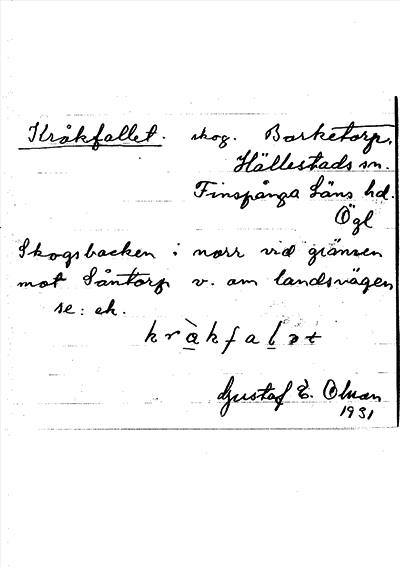 Kråkfallet. skog. Borketorp,
Hällestads sn.
Finspånga Läns hd.
Ögl
Skogsbacken i norr vid gränsen
mot Såntorp v. om landsvägen
se: ek.
kråkfalət
Gustaf E. Olman
1931